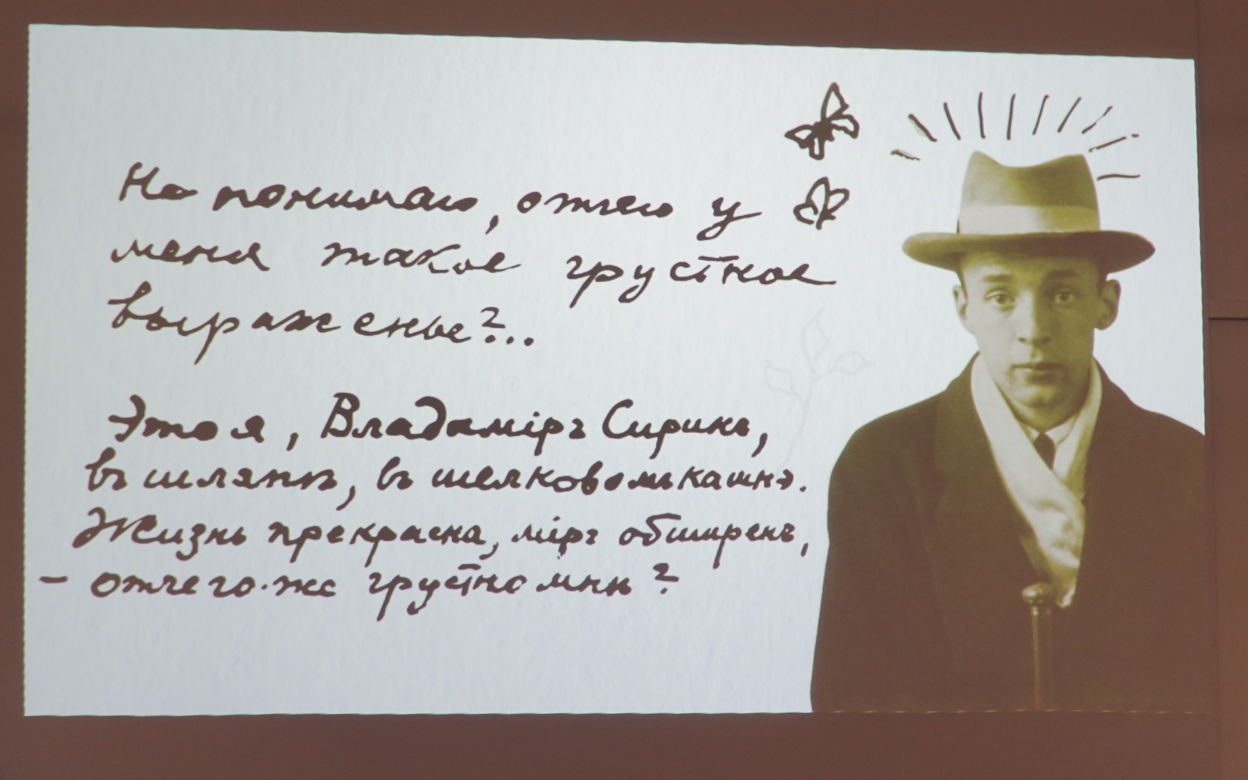 Не понимаю, отчего у
меня такое грустное
выраженье?...
Это я, Владимiръ Сиринъ,
въ шляпѣ, въ шелковомъ кашнэ.
Жизнь прекрасна, мiръ обширенъ,
– отчего-же грустно мнѣ?